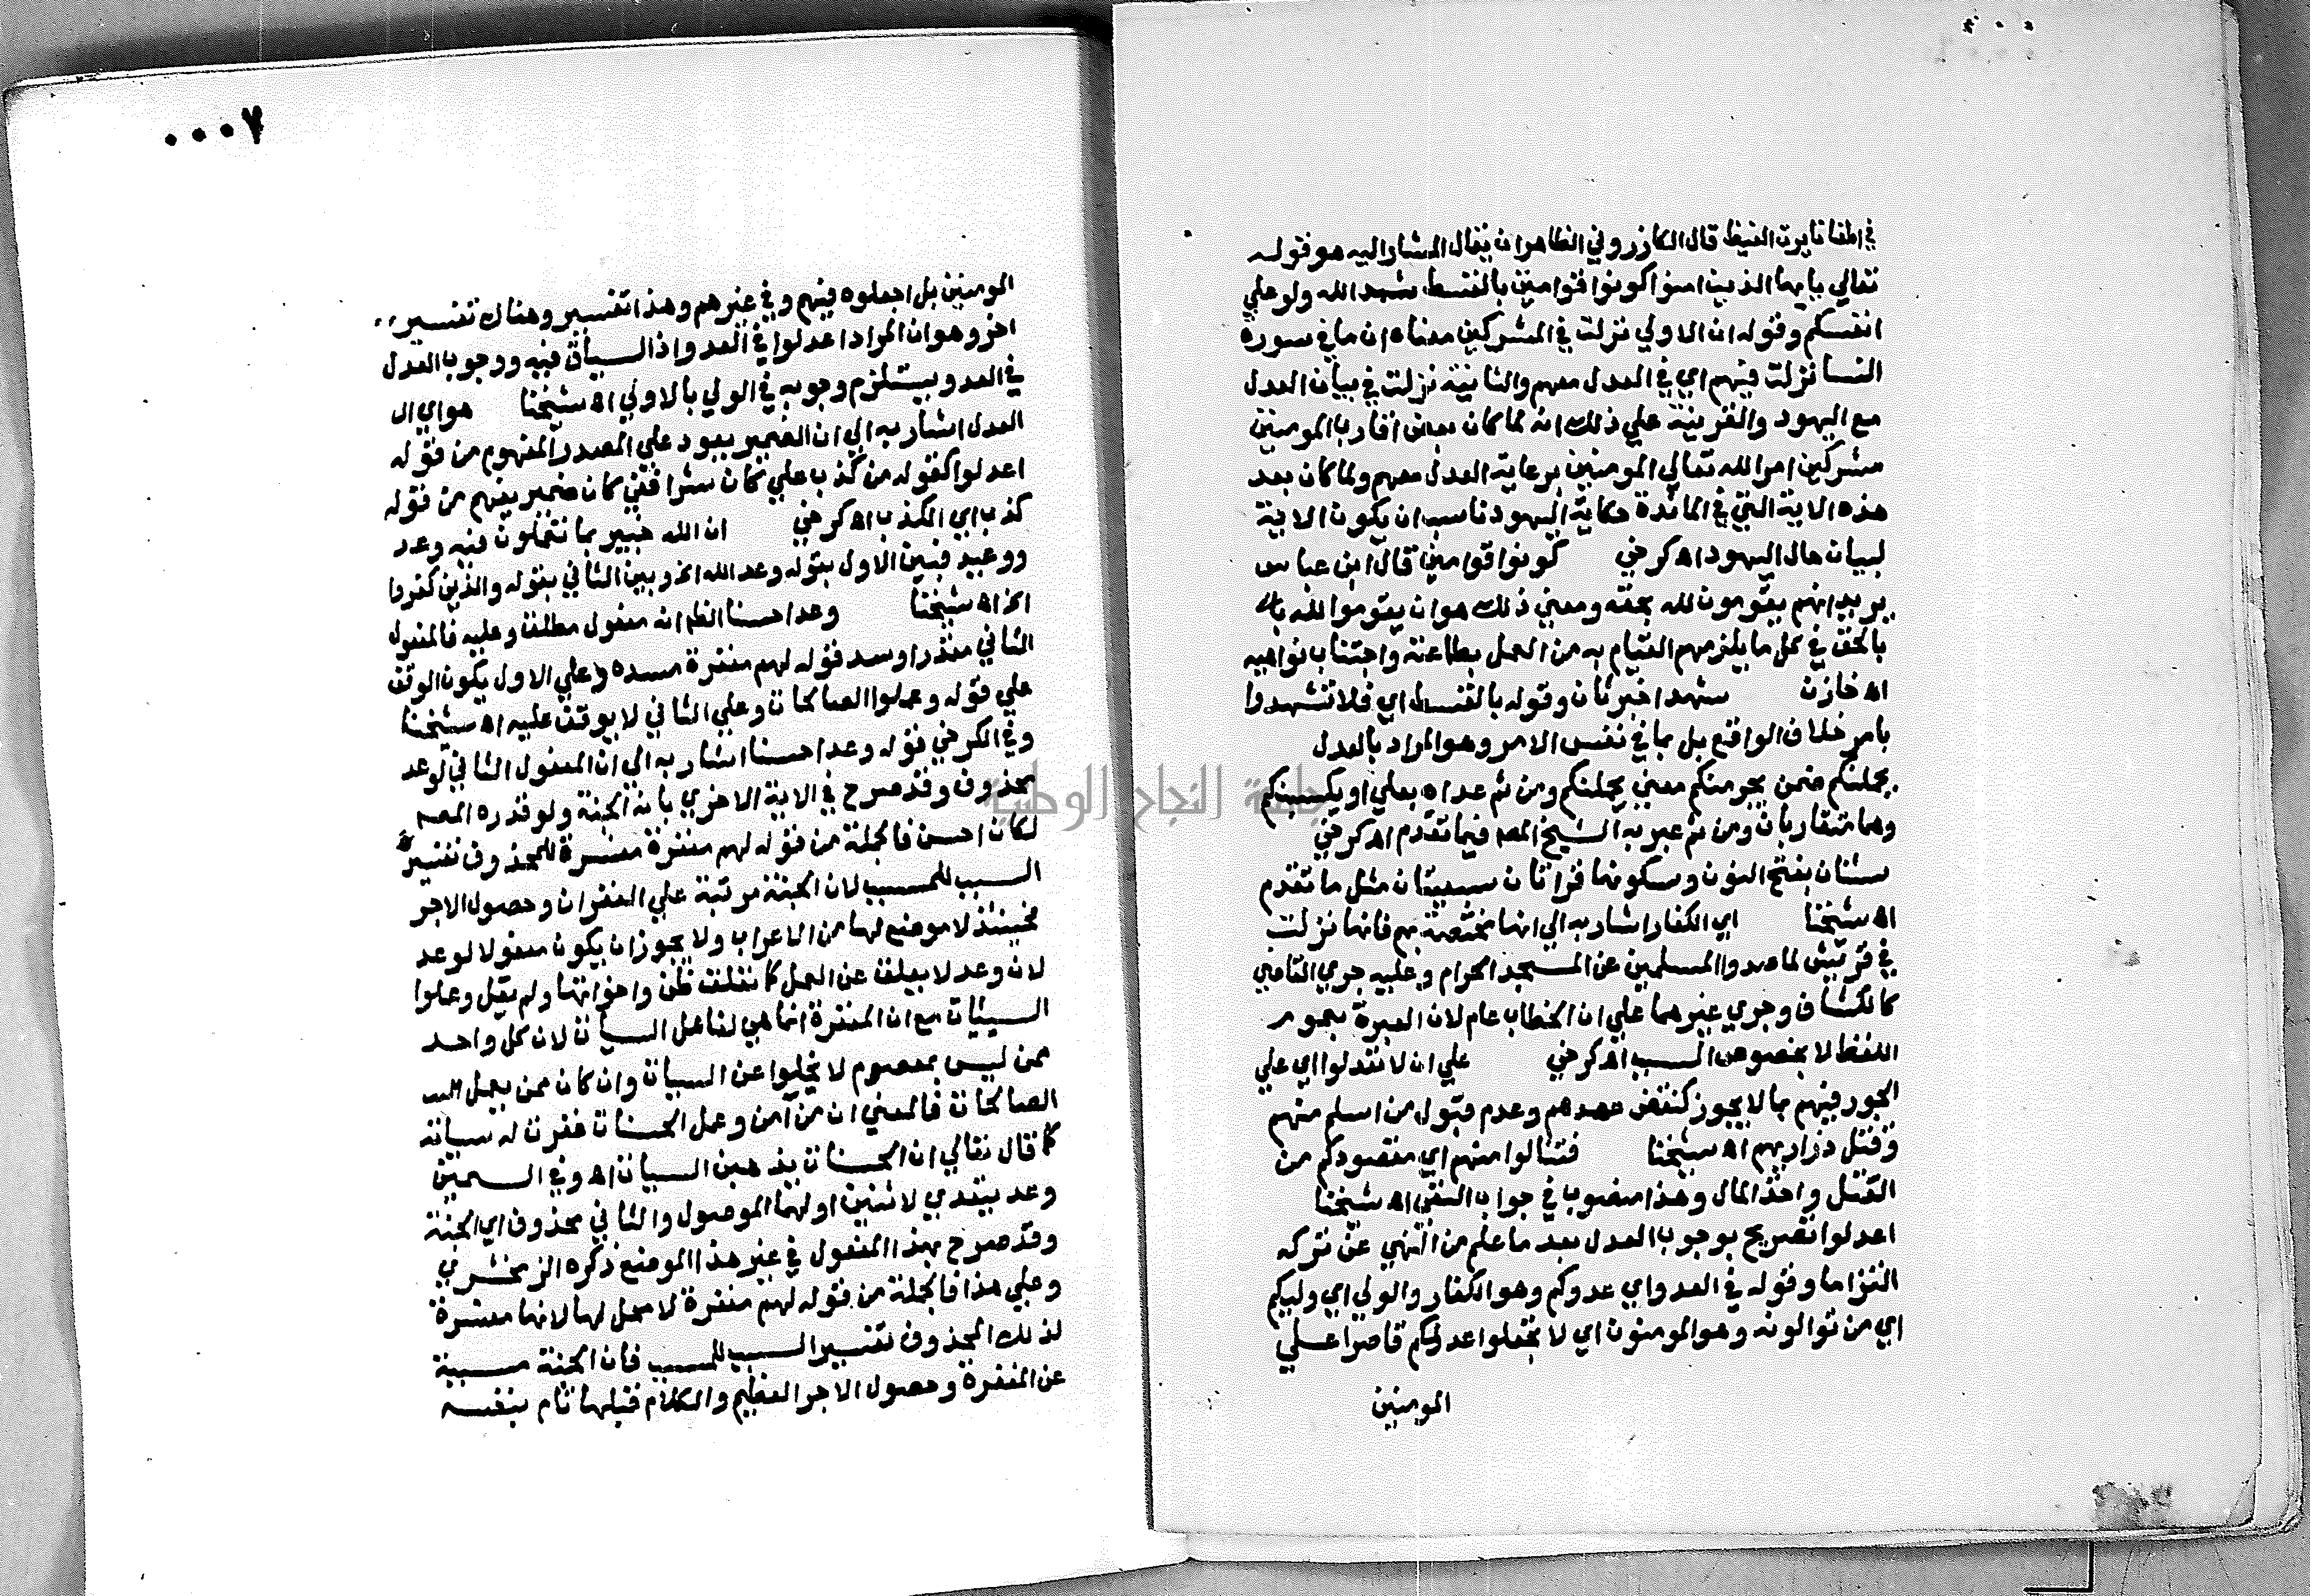 في اطفا نايرت الغيظ قال الكازروني الظاهر ان يقال المشار اليه هو قوله
تعالي يايها الذين امنوا كونوا قوامين بالقسط شهدا لله ولو علي
انفسكم وقوله ان الاولي نزلت في المشركين معناه ان ما في سورة
النسا نزلت فيهم اي في العدل معهم والثانية نزلت في بيان العدل
مع اليهود والقرينة علي ذلك انه لما كان بعض اقارب المومنين
مشركين امر الله تعالي المومنين برعاية العدل معهم ولما كان بعد
هذه الاية التي في المائدة حكاية اليهود ناسب ان يكون الاية
لبيان حال اليهود اه كرخي كونوا قوامين قال ابن عباس
يريد انهم يقومون لله بحقه ومعني ذلك هو ان يقوموا لله با
بالحق في كل ما يلزمهم القيام به من العمل بطاعته واجتناب نواهيه
اه خازن شهدا خبر ثان وقوله بالقسط اي فلا تشهدوا
بامر خلاف الواقع بل بما في نفس الامر وهو المراد بالعدل
يحملنكم ضمن يجرمنكم معني يحملنكم ومن ثم عداه بعلي او يكسبنكم
وهما متقاربان ومن ثم عبر به الشيخ المص فيما تقدم اه كرخي
شنان بفتح النون وسكونها قراتان سبعيتان مثل ما تقدم
اه شيخنا اي الكفار اشار به الي انها مختصة بهم فانها نزلت
في قريش لما صدوا المسلمين عن المسجد الحرام وعليه جري القاضي
كالكشاف وجري غيرهما علي ان الخطاب عام لان العبرة بعموم
اللفظ لا بخصوص السبب اه كرخي علي ان لا تعدلوا اي علي
الجور فيهم بما لا يجوز كنقض عهدهم وعدم قبول من اسلم منهم
وقتل ذراريهم اه شيخنا فتنالوا منهم اي مقصودكم من
القتل واخذ المال وهذا منصوب في جواب النفي اه شيخنا
اعدلوا تصريح بوجوب العدل بعد ما علم من النهي عن تركه
التزاما وقوله في العدو اي عدوكم وهو الكفار والولي اي وليكم
اي من توالونه وهو المومنون اي لا تجعلوا عدلكم قاصرا علي
المومنين
٠٠٠٧
المومنين بل اجعلوه فيهم وفي غيرهم وهذا تفسير وهناك تفسير
اخر وهو ان المراد اعدلوا في العدو اذ السياق فيه ووجوب العدل
في العدو يستلزم وجوبه في الولي بالاولي اه شيخنا هو اي ال
العدل اشار به الي ان الضمير يعود علي المصدر المفهوم من قوله
اعدلوا كقوله من كذب علي كان شرا ففي كان ضمير يفهم من قوله
كذب اي الكذب اه كرخي ان الله خبير بما تعملون فيه وعد
ووعيد فبين الاول بقوله وعد الله الخ وبين الثاني بقوله والذين كفروا
الخ اه شيخنا وعدا حسنا الظم انه مفعول مطلق وعليه فالمفعول
الثاني مقدر او سد قوله لهم مغفرة مسده وعلي الاول يكون الوقف
علي قوله وعملوا الصالحات وعلي الثاني لا يوقف عليه اه شيخنا
وفي الكرخي قوله وعدا حسنا اشار به الي ان المفعول الثاني لوعد
محذوف وقد صرح في الاية الاخري بانه الجنة ولو قدره المص
لكان احسن فالجملة من قوله لهم مغفرة مفسرة للمحذوف تفسير
السبب للمسبب لان الجنة مرتبة علي الغفران وحصول الاجر
فحينئذ لا موضع لها من الاعراب ولا يجوز ان يكون مفعولا لوعد
لان وعد لا يعلق عن العمل كما تعلق ظن واخواتها ولم يقل وعملوا
السيئات مع ان المغفرة انما هي لفاعل السيات لان كل واحد
ممن ليس بمعصوم لا يخلوا عن السيات وان كان ممن يعمل
الصالحات فالمعني ان من آمن وعمل الحسنات غفرت له سياته
كما قال تعالي ان الحسنات يذهبن السيات اه وفي السمين
وعد يتعدي لاثنين اولهما الموصول والثاني محذوف اي الجنة
وقد صرح بهذا المفعول في غير هذا الموضع ذكره الزمخشري
وعلي هذا فالجملة من قوله لهم مغفرة لا محل لها لانها مفسرة
لذلك المحذوف تفسير السبب للمسبب فان الجنة مسببة
عن المغفرة وحصول الاجر العظيم والكلام قبلها تام بنفسه
جامعة النجاح الوطنية